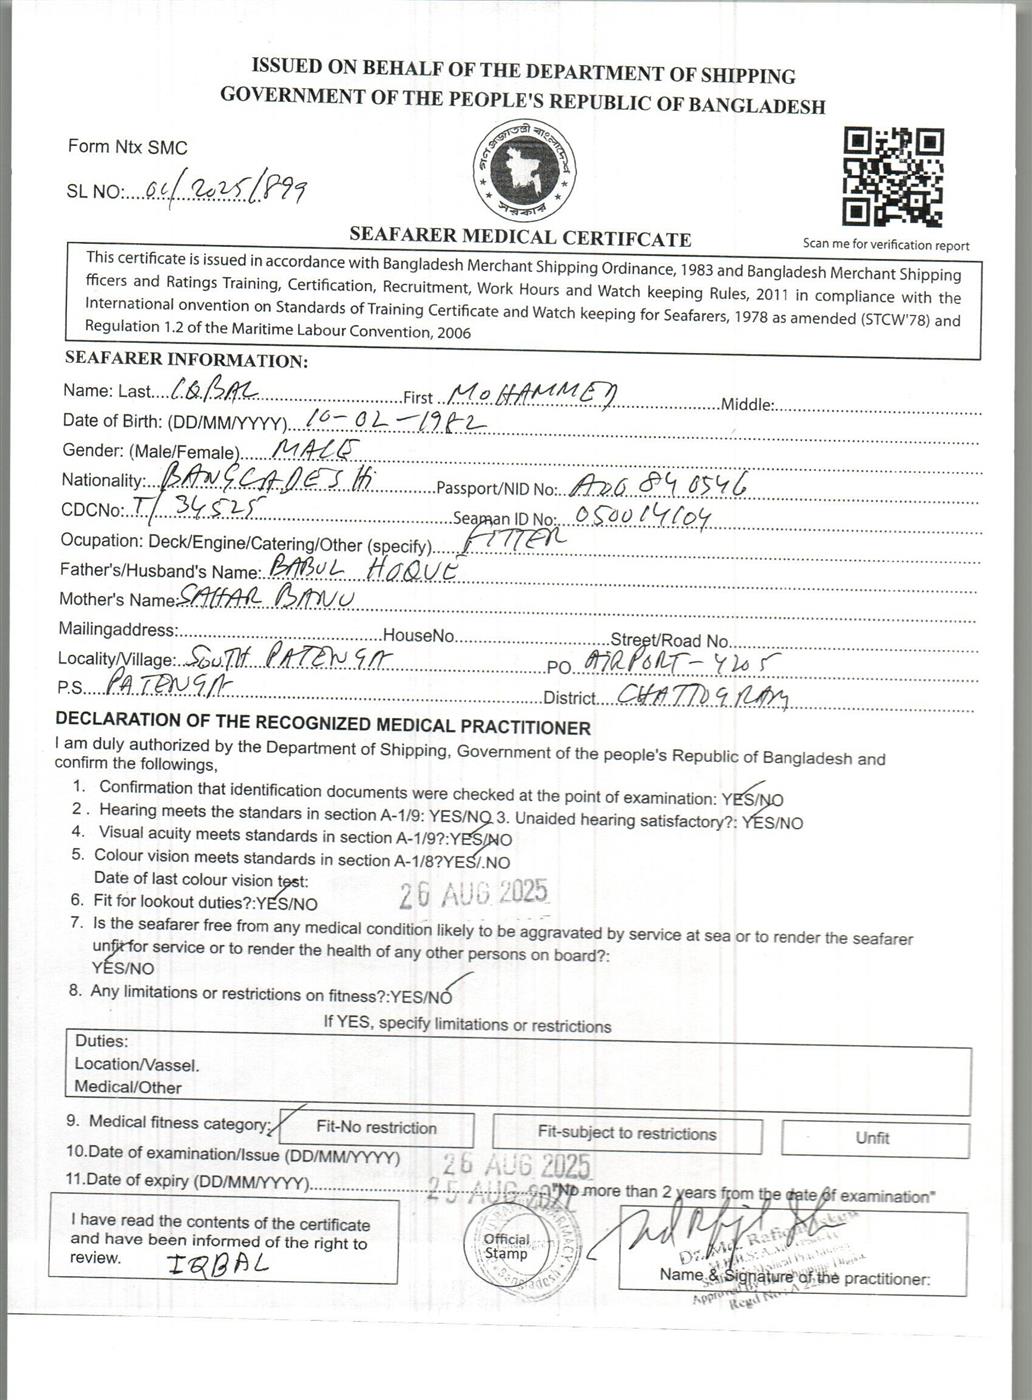 ISSUED ON BEHALF OF THE DEPARTMENT OF SHIPPING
GOVERNMENT OF THE PEOPLE'S REPUBLIC OF BANGLADESH
Form Ntx SMC
SL NO:....04/2025/899
গণপ্রজাতন্ত্রী বাংলাদেশ
সরকার
SEAFARER MEDICAL CERTIFCATE
Scan me for verification report
This certificate is issued in accordance with Bangladesh Merchant Shipping Ordinance, 1983 and Bangladesh Merchant Shipping
fficers and Ratings Training, Certification, Recruitment, Work Hours and Watch keeping Rules, 2011 in compliance with the
International onvention on Standards of Training Certificate and Watch keeping for Seafarers, 1978 as amended (STCW'78) and
Regulation 1.2 of the Maritime Labour Convention, 2006
SEAFARER INFORMATION:
Name: Last....IQBAL....First...MOHAMMED....Middle:....
Date of Birth: (DD/MM/YYYY)...10-02-1982
Gender: (Male/Female)....MALE
Nationality:..BANGLADESHi....Passport/NID No:..A00840546
CDCNo:.T/34525....Seaman ID No:..050014104
Ocupation: Deck/Engine/Catering/Other (specify)....FITTER
Father's/Husband's Name:.BABUL HOQUE
Mother's Name:SAHAR BANU
Mailingaddress:....HouseNo....Street/Road No....
Locality/Village:..SOUTH PATENGA....PO..AIRPORT-4205
P.S....PATENGA....District....CHATTOGRAM
DECLARATION OF THE RECOGNIZED MEDICAL PRACTITIONER
I am duly authorized by the Department of Shipping, Government of the people's Republic of Bangladesh and
confirm the followings,
1. Confirmation that identification documents were checked at the point of examination: YES/NO
2 . Hearing meets the standars in section A-1/9: YES/NO 3. Unaided hearing satisfactory?: YES/NO
4. Visual acuity meets standards in section A-1/9?:YES/NO
5. Colour vision meets standards in section A-1/8?YES/.NO
Date of last colour vision test: 26 AUG 2025
6. Fit for lookout duties?:YES/NO
7. Is the seafarer free from any medical condition likely to be aggravated by service at sea or to render the seafarer
unfit for service or to render the health of any other persons on board?:
YES/NO
8. Any limitations or restrictions on fitness?:YES/NO
If YES, specify limitations or restrictions
Duties:
Location/Vassel.
Medical/Other
9. Medical fitness category: Fit-No restriction Fit-subject to restrictions Unfit
10.Date of examination/Issue (DD/MM/YYYY) 26 AUG 2025
11.Date of expiry (DD/MM/YYYY)....25 AUG 2027 "No more than 2 years from the date of examination"
I have read the contents of the certificate
and have been informed of the right to
review. IQBAL
Official
Stamp
Bangladesh
Dr. Md.
Name & Signature of the practitioner: